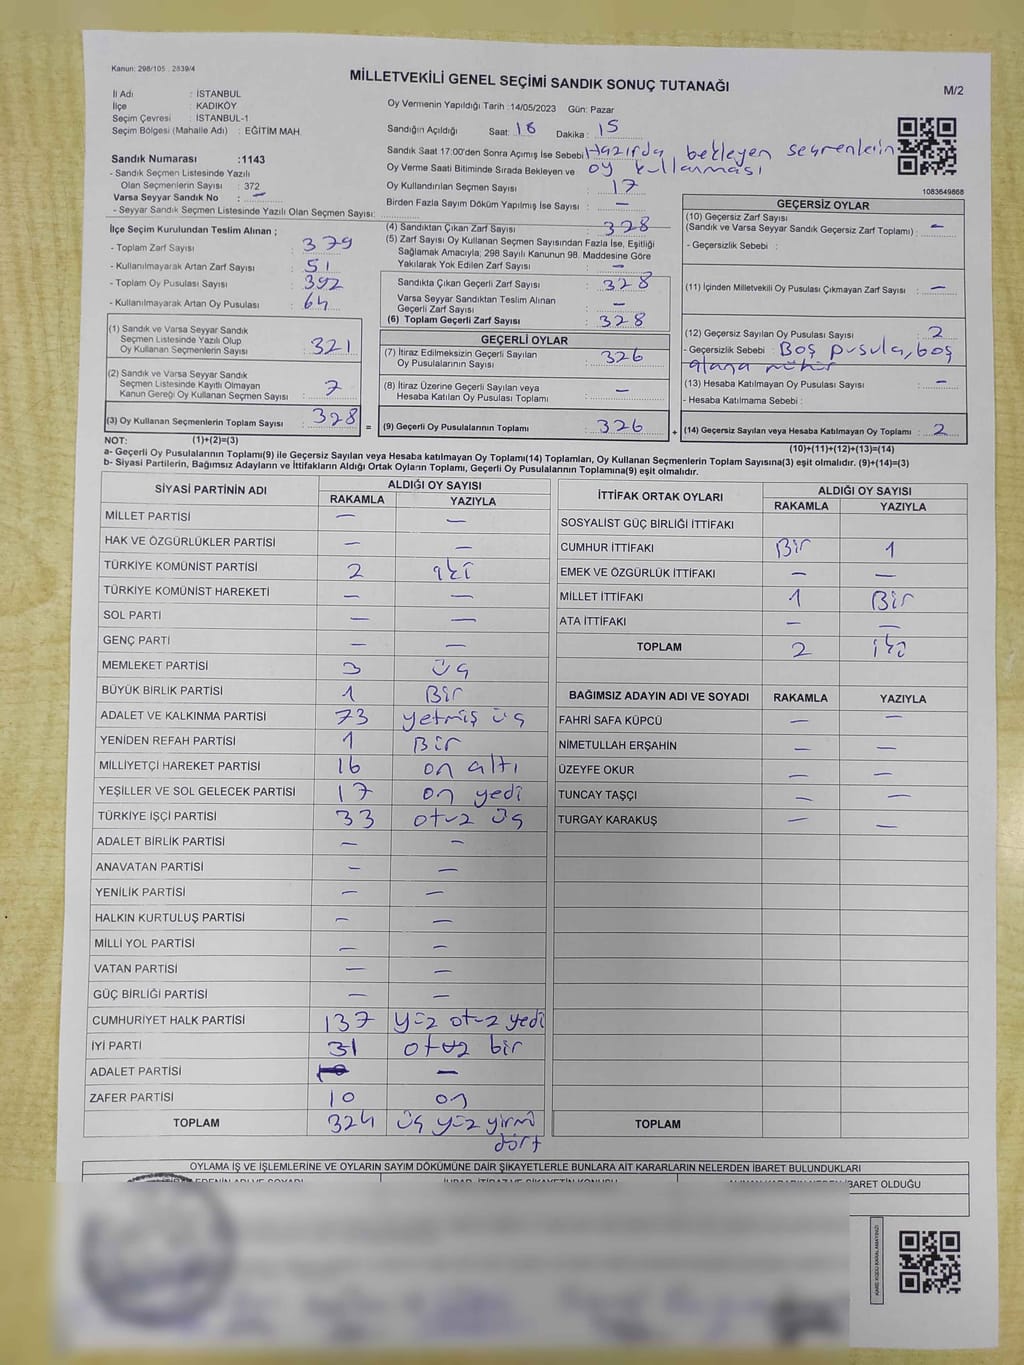 Kanun: 298/105 , 2839/4
MİLLETVEKİLİ GENEL SEÇİMİ SANDIK SONUÇ TUTANAĞI
M/2
İl Adı : İSTANBUL
İlçe : KADIKÖY
Seçim Çevresi : İSTANBUL-1
Seçim Bölgesi (Mahalle Adı) : EĞİTİM MAH.
Oy Vermenin Yapıldığı Tarih :14/05/2023 Gün: Pazar
Sandığın Açıldığı Saat: 16 Dakika : 15
Sandık Saat 17:00'den Sonra Açımış İse Sebebi Hazırda bekleyen seçmenlerin
oy kullanması
Oy Verme Saati Bitiminde Sırada Bekleyen ve
Oy Kullandırılan Seçmen Sayısı : 17
Birden Fazla Sayım Döküm Yapılmış İse Sayısı : —
1083649868
Sandık Numarası :1143
- Sandık Seçmen Listesinde Yazılı
Olan Seçmenlerin Sayısı : 372
Varsa Seyyar Sandık No : —
- Seyyar Sandık Seçmen Listesinde Yazılı Olan Seçmen Sayısı:
İlçe Seçim Kurulundan Teslim Alınan ;
- Toplam Zarf Sayısı : 379
- Kullanılmayarak Artan Zarf Sayısı : 51
- Toplam Oy Pusulası Sayısı : 392
- Kullanılmayarak Artan Oy Pusulası : 64
(1) Sandık ve Varsa Seyyar Sandık
Seçmen Listesinde Yazılı Olup
Oy Kullanan Seçmenlerin Sayısı : 321
(2) Sandık ve Varsa Seyyar Sandık
Seçmen Listesinde Kayıtlı Olmayan
Kanun Gereği Oy Kullanan Seçmen Sayısı : 7
(3) Oy Kullanan Seçmenlerin Toplam Sayısı : 328
(4) Sandıktan Çıkan Zarf Sayısı : 328
(5) Zarf Sayısı Oy Kullanan Seçmen Sayısından Fazla İse, Eşitliği
Sağlamak Amacıyla, 298 Sayılı Kanunun 98. Maddesine Göre
Yakılarak Yok Edilen Zarf Sayısı : —
Sandıkta Çıkan Geçerli Zarf Sayısı : 328
Varsa Seyyar Sandıktan Teslim Alınan
Geçerli Zarf Sayısı : —
(6) Toplam Geçerli Zarf Sayısı : 328
GEÇERLİ OYLAR
(7) İtiraz Edilmeksizin Geçerli Sayılan
Oy Pusulalarının Sayısı : 326
(8) İtiraz Üzerine Geçerli Sayılan veya
Hesaba Katılan Oy Pusulası Toplamı : —
= (9) Geçerli Oy Pusulalarının Toplamı : 326
GEÇERSİZ OYLAR
(10) Geçersiz Zarf Sayısı
(Sandık ve Varsa Seyyar Sandık Geçersiz Zarf Toplamı) : —
- Geçersizlik Sebebi :
(11) İçinden Milletvekili Oy Pusulası Çıkmayan Zarf Sayısı : —
(12) Geçersiz Sayılan Oy Pusulası Sayısı : 2
- Geçersizlik Sebebi : Boş pusula, boş
alana mühür
(13) Hesaba Katılmayan Oy Pusulası Sayısı : —
- Hesaba Katılmama Sebebi :
+ (14) Geçersiz Sayılan veya Hesaba Katılmayan Oy Toplamı : 2
NOT: (1)+(2)=(3)
(10)+(11)+(12)+(13)=(14)
a- Geçerli Oy Pusulalarının Toplamı(9) ile Geçersiz Sayılan veya Hesaba katılmayan Oy Toplamı(14) Toplamları, Oy Kullanan Seçmenlerin Toplam Sayısına(3) eşit olmalıdır. (9)+(14)=(3)
b- Siyasi Partilerin, Bağımsız Adayların ve İttifakların Aldığı Ortak Oyların Toplamı, Geçerli Oy Pusulalarının Toplamına(9) eşit olmalıdır.
SİYASİ PARTİNİN ADI ALDIĞI OY SAYISI
RAKAMLA YAZIYLA
MİLLET PARTİSİ — —
HAK VE ÖZGÜRLÜKLER PARTİSİ — —
TÜRKİYE KOMÜNİST PARTİSİ 2 iki
TÜRKİYE KOMÜNİST HAREKETİ — —
SOL PARTİ — —
GENÇ PARTİ — —
MEMLEKET PARTİSİ 3 üç
BÜYÜK BİRLİK PARTİSİ 1 Bir
ADALET VE KALKINMA PARTİSİ 73 yetmiş üç
YENİDEN REFAH PARTİSİ 1 Bir
MİLLİYETÇİ HAREKET PARTİSİ 16 on altı
YEŞİLLER VE SOL GELECEK PARTİSİ 17 on yedi
TÜRKİYE İŞÇİ PARTİSİ 33 otuz üç
ADALET BİRLİK PARTİSİ — —
ANAVATAN PARTİSİ — —
YENİLİK PARTİSİ — —
HALKIN KURTULUŞ PARTİSİ — —
MİLLİ YOL PARTİSİ — —
VATAN PARTİSİ — —
GÜÇ BİRLİĞİ PARTİSİ — —
CUMHURİYET HALK PARTİSİ 137 yüz otuz yedi
İYİ PARTİ 31 otuz bir
ADALET PARTİSİ —
ZAFER PARTİSİ 10 on
TOPLAM 324 üç yüz yirmi
dört
İTTİFAK ORTAK OYLARI ALDIĞI OY SAYISI
RAKAMLA YAZIYLA
SOSYALİST GÜÇ BİRLİĞİ İTTİFAKI
CUMHUR İTTİFAKI Bir 1
EMEK VE ÖZGÜRLÜK İTTİFAKI — —
MİLLET İTTİFAKI 1 Bir
ATA İTTİFAKI — —
TOPLAM 2 iki
BAĞIMSIZ ADAYIN ADI VE SOYADI RAKAMLA YAZIYLA
FAHRİ SAFA KÜPCÜ — —
NİMETULLAH ERŞAHİN — —
ÜZEYFE OKUR — —
TUNCAY TAŞÇI — —
TURGAY KARAKUŞ — —
TOPLAM
OYLAMA İŞ VE İŞLEMLERİNE VE OYLARIN SAYIM DÖKÜMÜNE DAİR ŞİKAYETLERLE BUNLARA AİT KARARLARIN NELERDEN İBARET BULUNDUKLARI
İBARET OLDUĞU